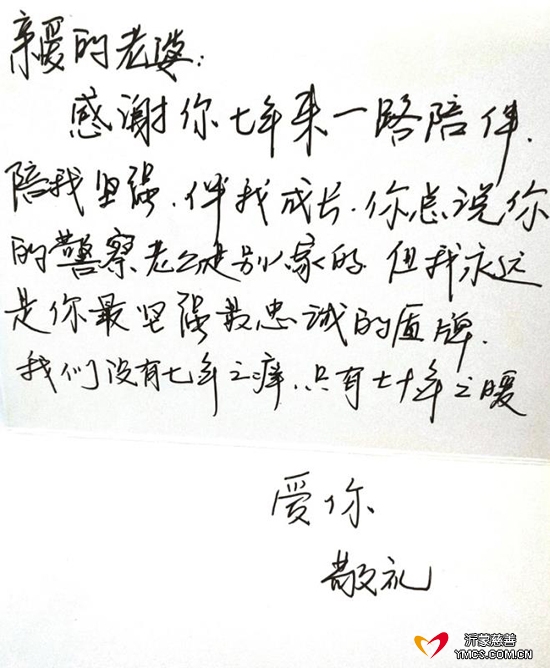 亲爱的老婆：
感谢你七年来一路陪伴.
陪我坚强.伴我成长.你总说你
的警察老公是别人家的.但我永远
是你最坚强最忠诚的盾牌.
我们没有七年之痒.只有七十年之暖
爱你
敬礼
沂蒙慈善
YMCS.COM.CN